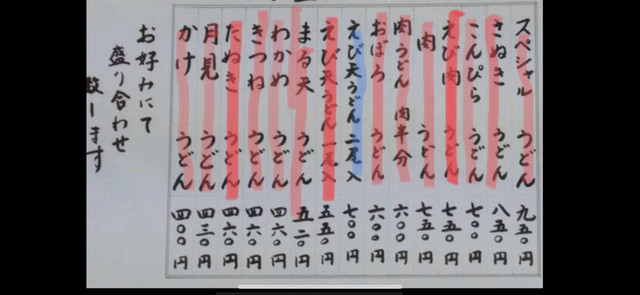 スペシャル うどん 九五〇円
さぬき うどん 八五〇円
こんぴら うどん 七〇〇円
えび肉 うどん 七五〇円
肉 うどん 七五〇円
肉うどん 肉半分 六〇〇円
おぼろ うどん 六〇〇円
えび天うどん 二尾入 七〇〇円
えび天うどん 一尾入 五五〇円
まる天 うどん 五二〇円
わかめ うどん 四六〇円
きつね うどん 四六〇円
たぬき うどん 四六〇円
月見 うどん 四三〇円
かけ うどん 四〇〇円
お好みにて
盛り合わせ
致します